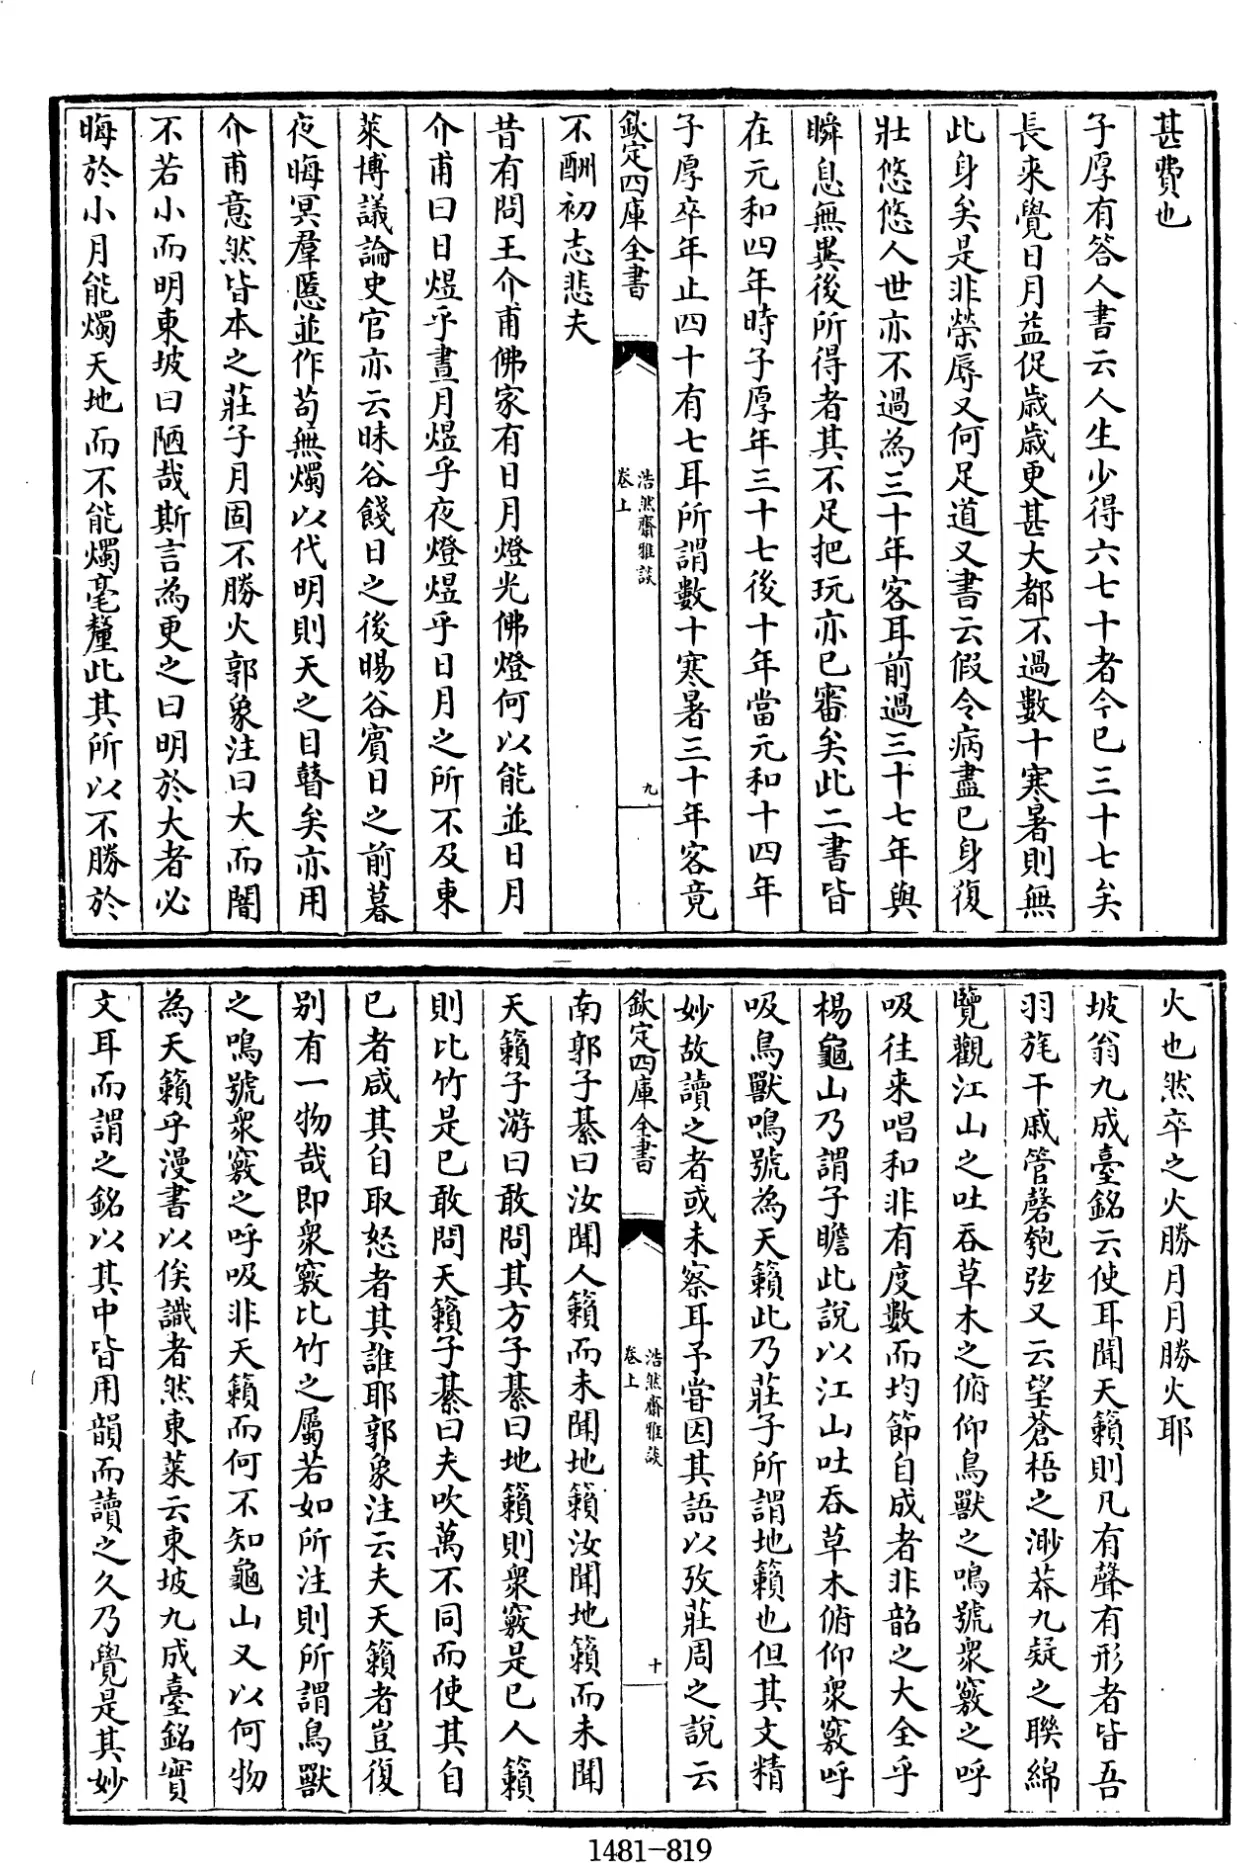 甚費也
子厚有答人書云人生少得六七十者今已三十七矣
長来覺日月益促歲歲更甚大都不過數十寒暑則無
此身矣是非榮辱又何足道又書云假令病盡已身復
壯悠悠人世亦不過為三十年客耳前過三十七年與
瞬息無異後所得者其不足把玩亦已審矣此二書皆
在元和四年時子厚年三十七後十年當元和十四年
子厚卒年止四十有七耳所謂數十寒暑三十年客竟
欽定四庫全書
浩然齋雅談
卷上
九
不酬初志悲夫
昔有問王介甫佛家有日月燈光佛燈何以能並日月
介甫曰日煜乎晝月煜乎夜燈煜乎日月之所不及東
萊博議論史官亦云昧谷餞日之後暘谷賓日之前暮
夜晦冥羣慝並作苟無燭以代明則天之目瞽矣亦用
介甫意然皆本之莊子月固不勝火郭象注曰大而闇
不若小而明東坡曰陋哉斯言為更之曰明於大者必
晦於小月能燭天地而不能燭毫釐此其所以不勝於
火也然卒之火勝月月勝火耶
坡翁九成臺銘云使耳聞天籟則凡有聲有形者皆吾
羽旄干戚管磬匏弦又云望蒼梧之渺莽九疑之聯綿
覽觀江山之吐吞草木之俯仰鳥獸之鳴號衆竅之呼
吸往来唱和非有度數而均節自成者非韶之大全乎
楊龜山乃謂子瞻此說以江山吐吞草木俯仰衆竅呼
吸鳥獸鳴號為天籟此乃莊子所謂地籟也但其文精
妙故讀之者或未察耳予嘗因其語以攷莊周之說云
欽定四庫全書
浩然齋雅談
卷上
十
南郭子綦曰汝聞人籟而未聞地籟汝聞地籟而未聞
天籟子游曰敢問其方子綦曰地籟則衆竅是已人籟
則比竹是已敢問天籟子綦曰夫吹萬不同而使其自
已者咸其自取怒者其誰耶郭象注云夫天籟者豈復
别有一物哉即衆竅比竹之屬若如所注則所謂鳥獸
之鳴號衆竅之呼吸非天籟而何不知龜山又以何物
為天籟乎漫書以俟識者然東萊云東坡九成臺銘實
文耳而謂之銘以其中皆用韻而讀之久乃覺是其妙
1481-819